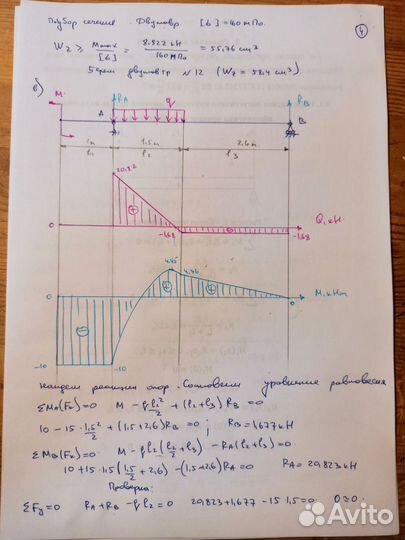 Подбор сечения. Двутавр [σ]=160 МПа.
4
Wz ≥ Mmax/[σ] = 8.922 кН/160 МПа = 55,76 см³
Берем двутавр №12 (Wz = 58.4 см³)
в)
M RA q RB
A B
1м 1.5м 2.6м
l1 l2 l3
20,82
⊕ ⊖
0 -1.68 -1.68 Q, кН
4.45 4.36
0 ⊖ ⊕ ⊕ 0 M, кНм
-10 -10
Найдем реакции опор. Составим уравнение равновесия
ΣMA(Fк)=0 M - q l2²/2 + (l2+l3) RB = 0
10 - 15 · 1.5²/2 + (1,5+2,6) RB = 0 ; RB = 1,677 кН
ΣMB(Fк)=0 M + q l2 (l2/2 + l3) - RA(l2+l3) = 0
10 + 15·1.5 (1.5/2 + 2,6) - (1.5+2.6) RA = 0 RA = 20,823 кН
Проверка:
ΣFy=0 RA + RB - q l2 = 0 20,823 + 1,677 - 15·1,5 = 0 0 = 0.
Avito